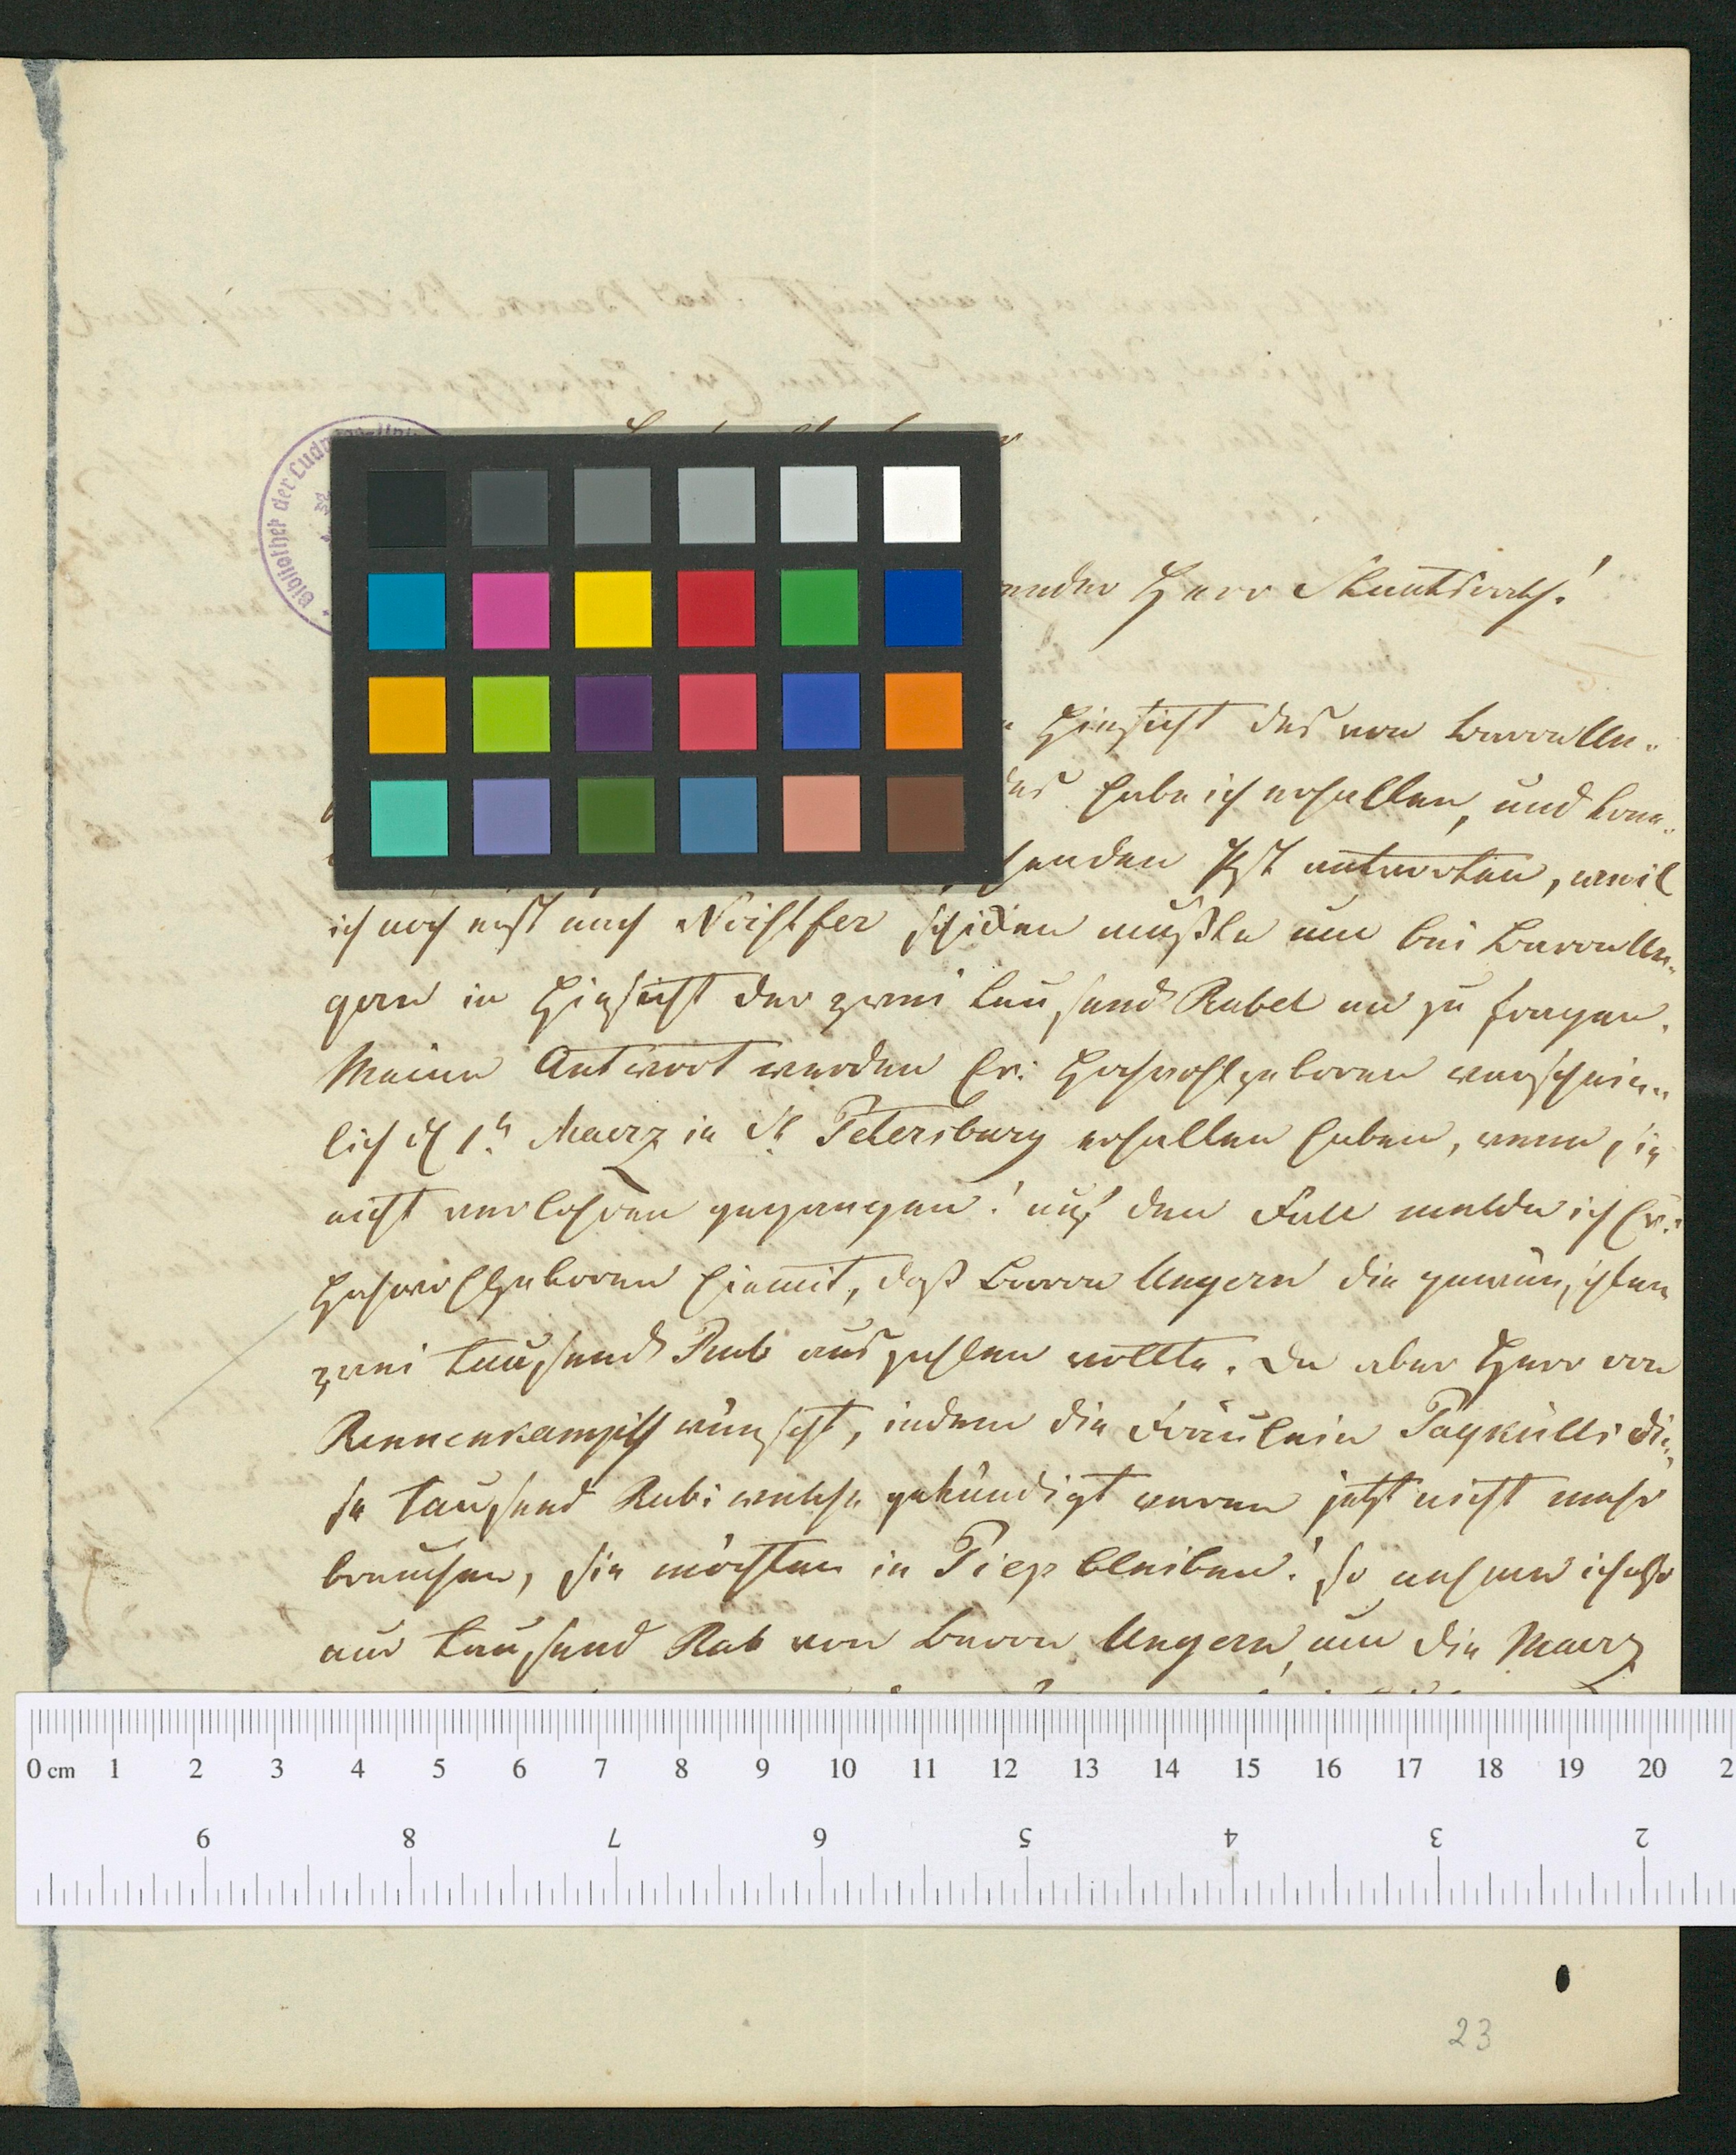 Bibliothek der Lud
nder Herr Staatsrath!
Hinsicht des von Baron Un„
des habe ich erhalten, und kon„
henden Post antworten, weil
ich noch erst nach Noistfer schicken mußte um bei Baron Un„
gern in Hinsicht der zwei tausend Rubel an zu fragen.
Meine Antwort werden Ew: Hochwohlgeboren warschein„
lich d 1t Maerz in St Petersburg erhalten haben, wenn sie
nicht verlohren gegangen! auf den Fall melde ich Ew:
Hochwohlgeboren hiemit, daß Baron Ungern die gewünschten
zwei tausend Rub auszahlen wollte. Da aber Herr von
Rennenkampff wünscht, indem die Fräulein Paykülls die„
se tausend Rub: welche gekündigt waren jetzt nicht mehr
brauchen, sie möchten in Piep bleiben! so nehme ich also
nur tausend Rub von Baron Ungern, um die Maerz
0 cm 1 2 3 4 5 6 7 8 9 10 11 12 13 14 15 16 17 18 19 20 2
9 8 7 6 5 4 3 2
23